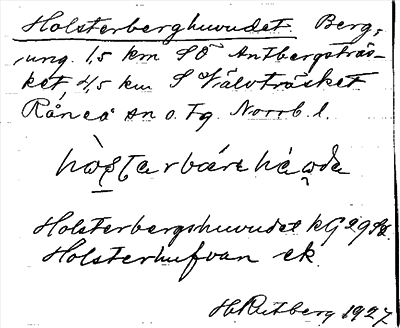 Holsterberghuvudet. Berg,
ung. 1,5 km SO Antbergsträs-
ket 4,5 km S Välvträsket
Råneå sn o. Tg. Norrb. l.
Holsterbergshuvudet kG
Holsterhufvan ek.
H. Rutberg 1927